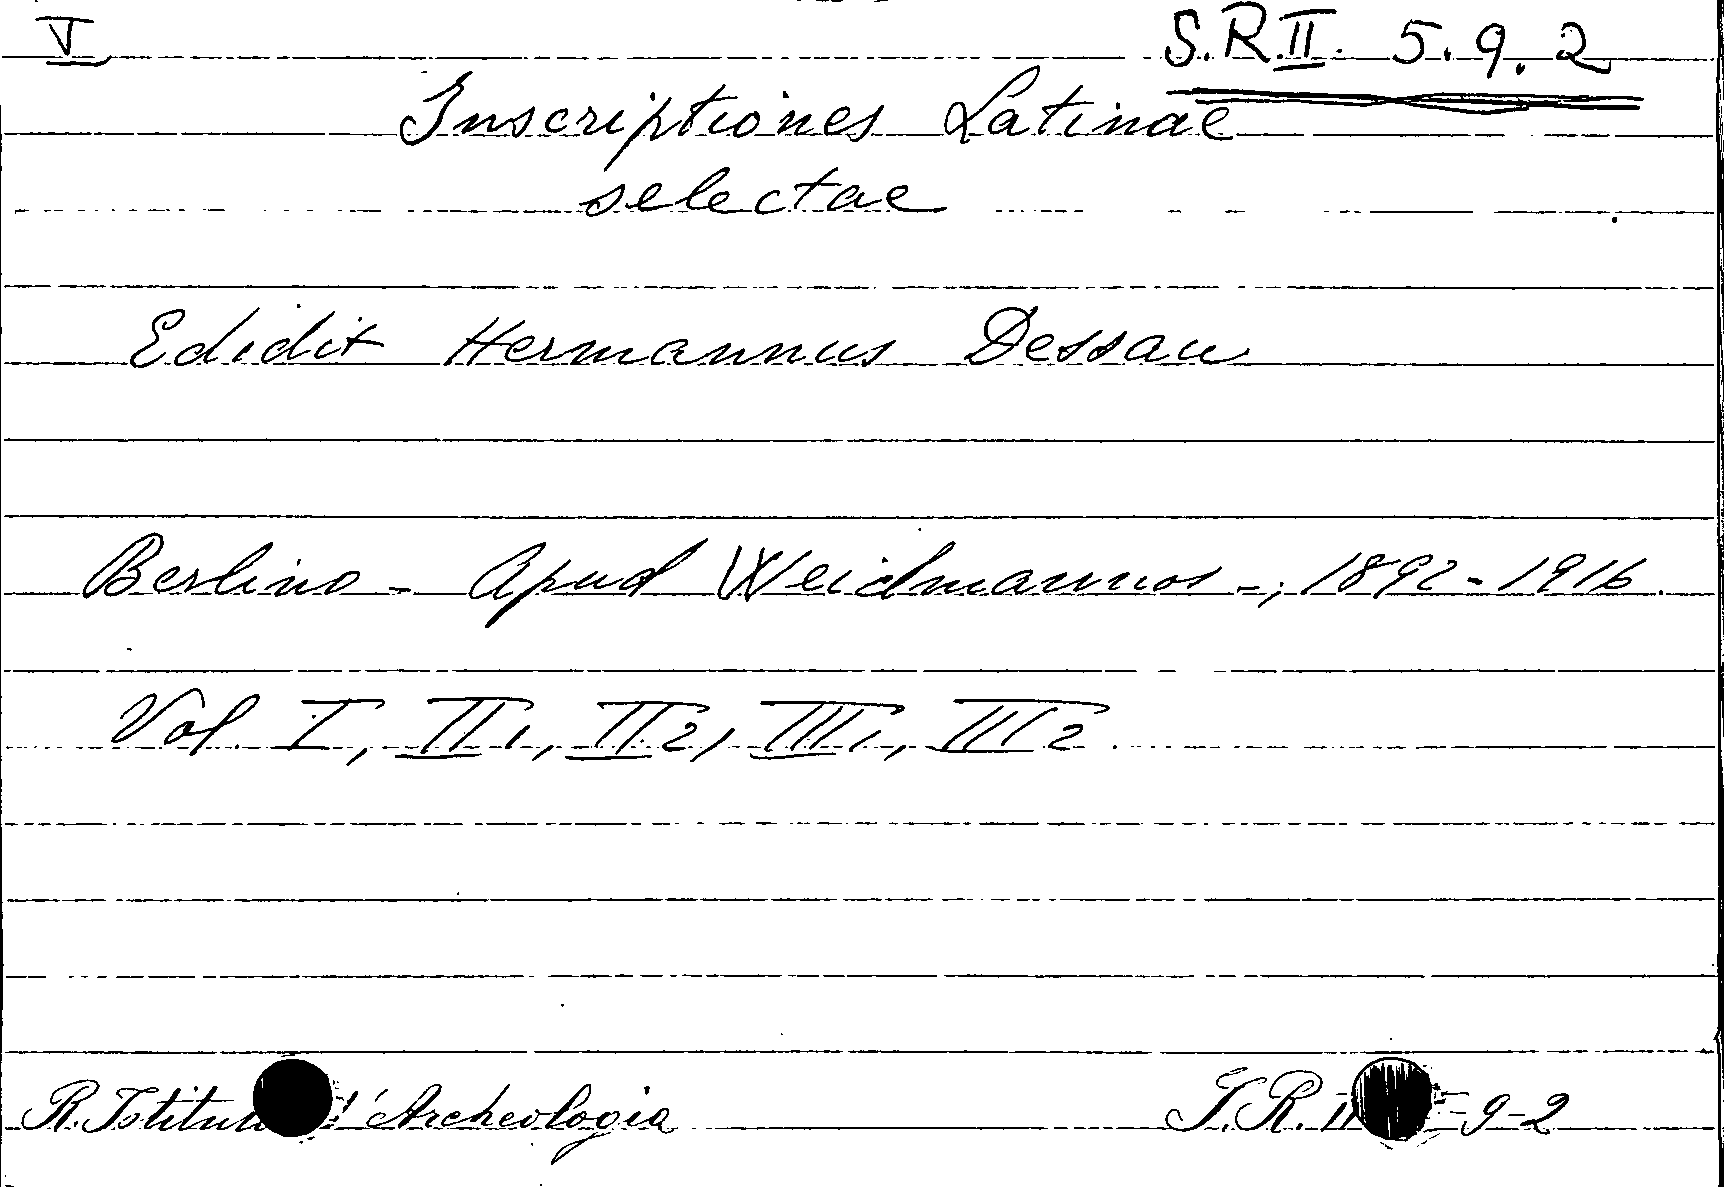 V S.R.II. 5.9.2
Inscriptiones Latinae
selectae
Edidit Hermannus Dessau
Berlino - Apud Weidmannos -; 1892-1916.
Vol. I, II1, II2, III1, III2
R. Istitu d'Archeologia S.R. II - 9-2